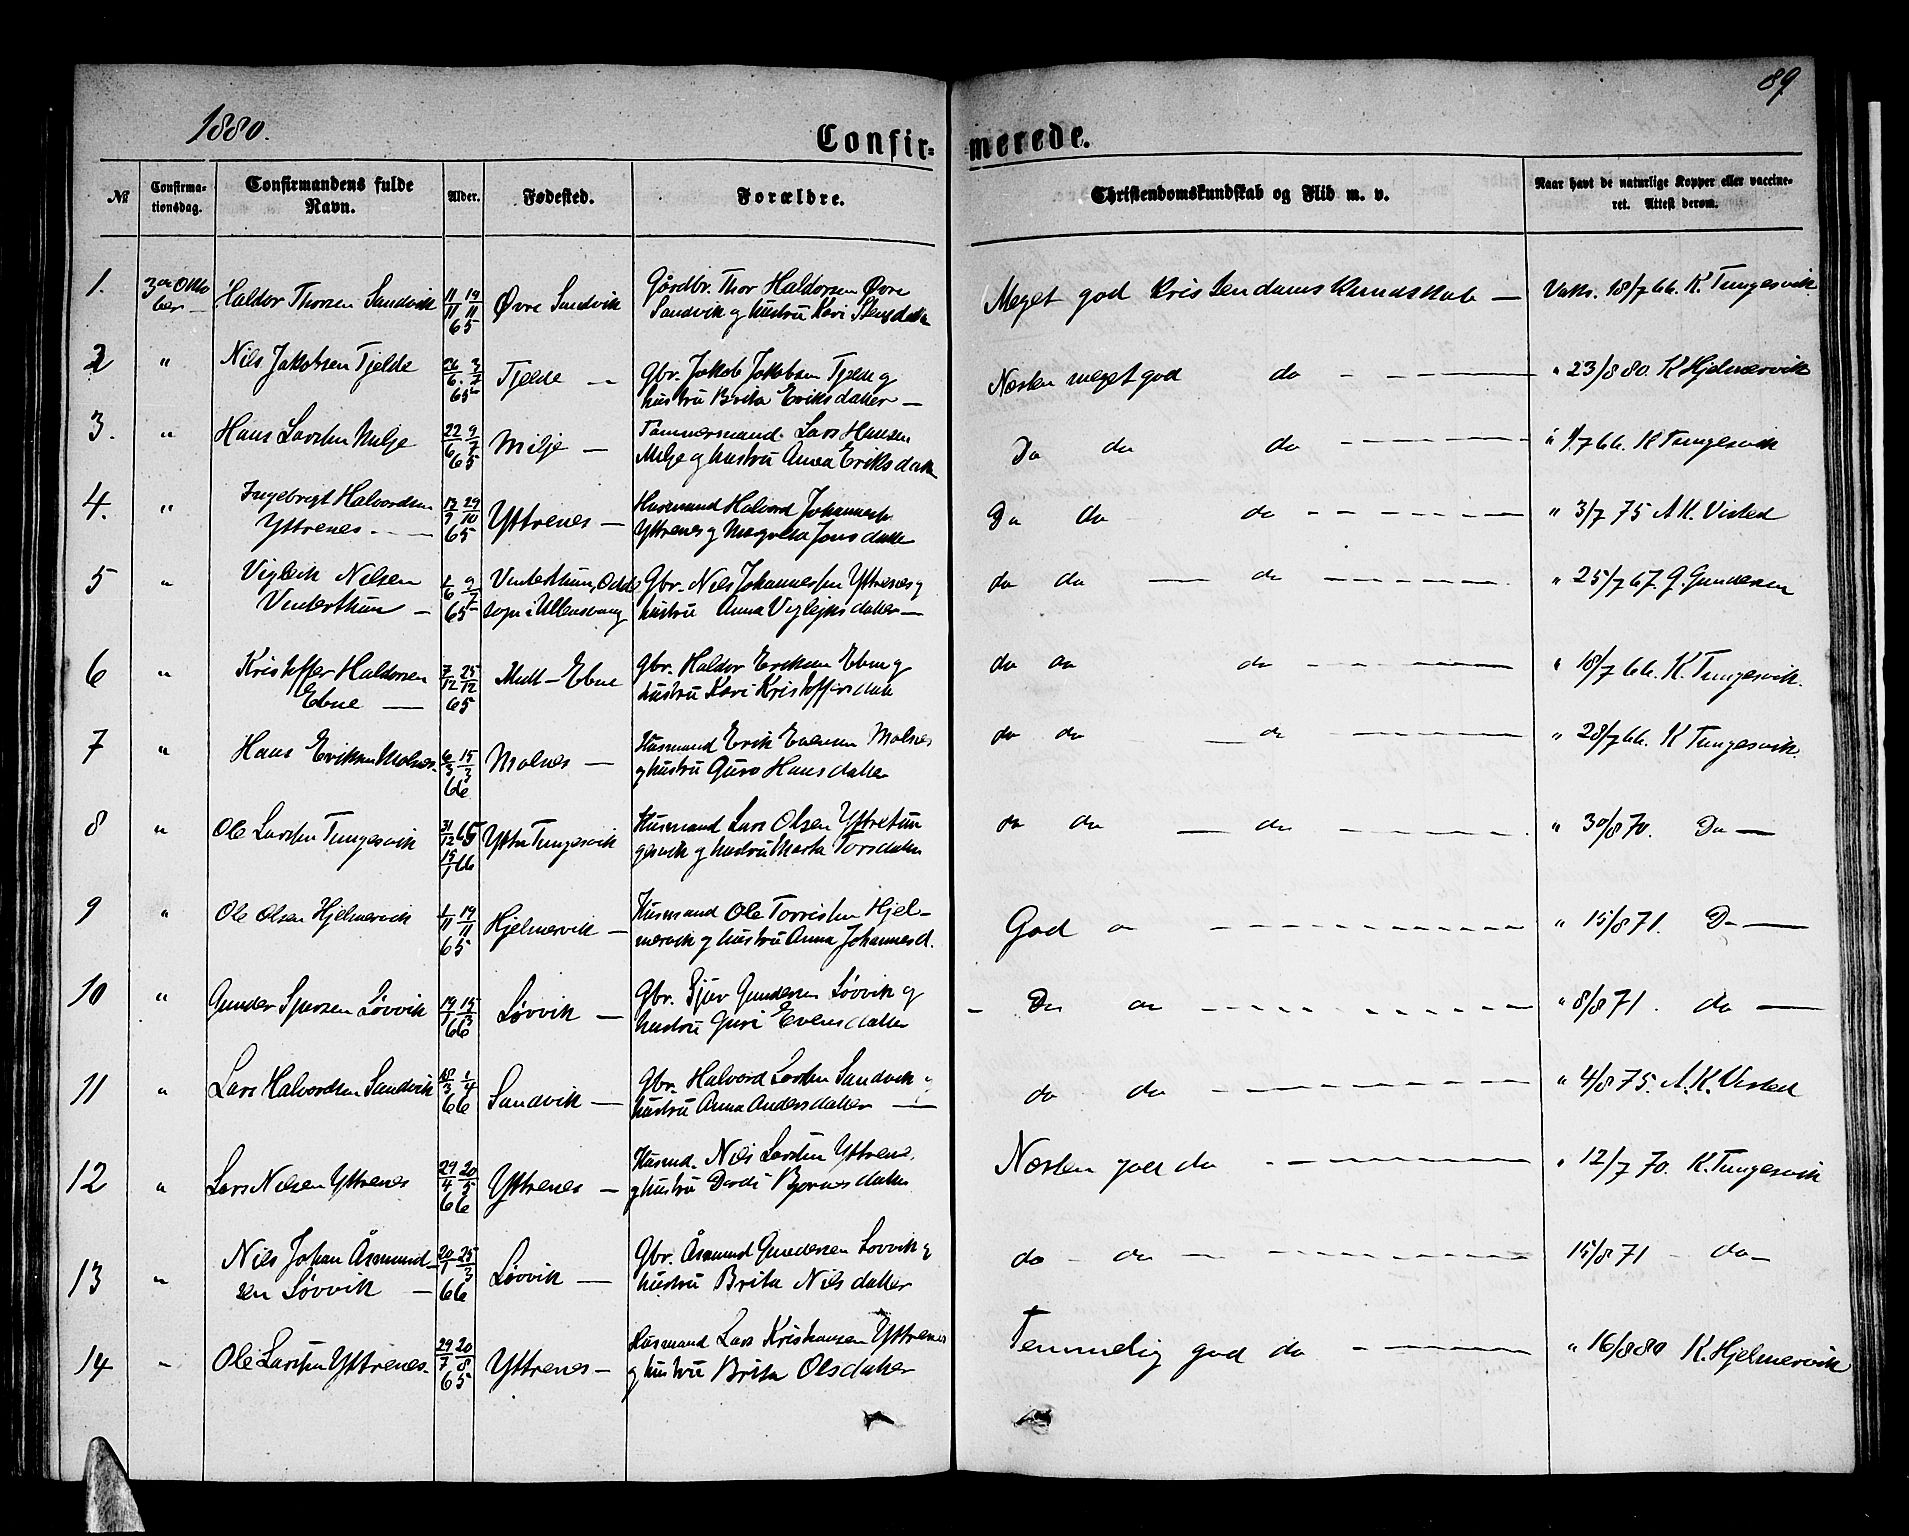 89
1880.
Confirmerede.
№ Confirmationsdag. Confirmandens fulde Navn. Alder. Fødested. Forældre. Christendomskundskab og Flid m. v. Naar havt de naturlige Kopper eller vaccineret. Attest derom.
1. 3die Oktober Haldor Thorsen Sandvik 11/11 19/11 65 Øvre Sandvik Gårdbr. Thor Haldorsen Øvre
Sandvik og hustru Kari Stensdatter Meget god Kristendomskundskab — Vaks. 18/7 66. K. Tungesvik
2 " Nils Jakobsen Tjelde 26/6 2/7 65 Tjelde — Gbr. Jakob Jakobsen Tjelde og
hustru Brita Eriksdatter — Næsten meget god do " 23/8 80. K Hjelmervik
3. " Hans Larsen Milje 22/6 9/7 65 Milje — Tømmermand Lars Hansen
Milje og hustru Anna Eriksdatter Do do do " 9/7 66. K Tungesvik
4. " Ingebrigt Halvordsen
Yttrenes 13/9 29/10 65 Yttrenes — Husmand Halvord Johanness.
Yttrenes og Magreta Jonsdatter Do do do " 3/7 75 A K. Visted
5 " Vigleik Nilsen
Vinterthun — 1/6 9/7 65 Vinterthun, Odde
sogn i Ullensvang Gbr. Nils Johannessen Yttrenes og
hustru Anna Viglejksdatter — do do — do " 25/7 67. G. Gundersen
6 " Kristoffer Haldorsen
Ebne — 7/12 25/12 65 Mell-Ebne Gbr. Haldor Eriksen Ebne og
hustru Kari Kristoffersdatter do do do " 18/7 66. K. Tungesvik.
7 " Hans Eriksen Molnes 6/3 15/3 66 Molnes — Husmand Erik Evensen Molnes
og hustru Guro Hansdatter do do — do " 28/7 66. K Tungesvik.
8 " Ole Larsen Tungesvik 31/12 65 14/1 66 Yttre Tungesvik Husmand Lars Olsen Yttretun
gesvik og hustru Marta Torsdatter do do — do " 30/8 70. Do —
9 " Ole Olsen Hjelmervik 1/11 19/11 65 Hjelmervik — Husmand Ole Torrissen Hjel-
mervik og hustru Anna Johannesd. God " 15/8 71. Do —
10 " Gunder Sjursen Løvvik 19/1 15/3 66 Løvvik — Gbr. Sjur Gundersen Løvvik og
hustru Guri Evensdatter Do do " 8/8 71. do —
11 " Lars Halvordsen Sandvik 18/3 1/4 66 Sandvik — Gbr. Halvord Larsen Sandvik og
hustru Anna Andersdatter — do do " 4/8 75. A. K. Visted
12 " Lars Nilsen Yttrenes 29/4 20/5 66 Yttrenes — Husmd. Nils Larsen Yttrenes
og hustru Dordi Bjørnesdatter Næsten god do " 12/7 70. K. Tungesvik
13 " Nils Johan Åsmund-
sen Løvvik — 20/1 25/3 66 Løvvik — Gbr. Åsmund Gundersen Løvvik og
hustru Brita Nilsdatter do - do — 15/8 71 - do —
14 " Ole Larsen Yttrenes. 29/7 20/8 65 Yttrenes — Husmand Lars Kristiansen Yttrenes
og hustru Brita Olsdatter Temmelig god do " 16/8 80 K. Hjelmervik